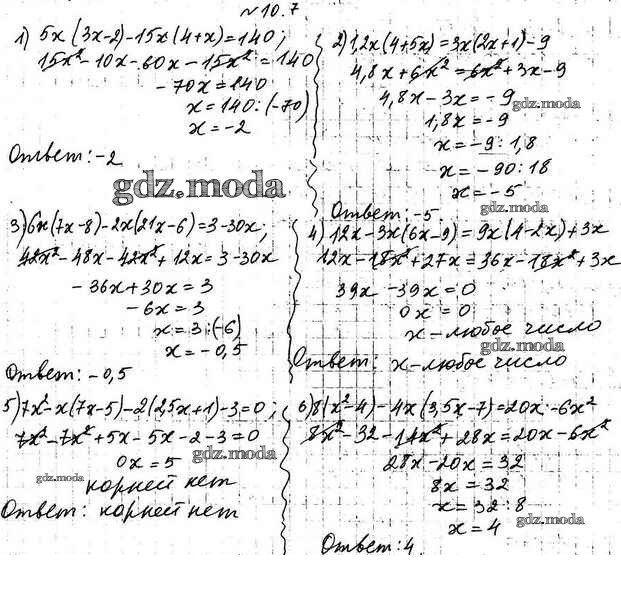 №10.7
1) 5x(3x-2)-15x(4+x)=140;
15x²-10x-60x-15x²=140
-70x=140
x=140:(-70)
x=-2
Ответ:-2
gdz.moda
2) 1,2x(4+5x)=3x(2x+1)-9
4,8x+6x²=6x²+3x-9
4,8x-3x=-9
gdz.moda
1,8x=-9
x=-9:1,8
x=-90:18
x=-5
Ответ:-5
3) 6x(7x-8)-2x(21x-6)=3-30x;
42x²-48x-42x²+12x=3-30x
-36x+30x=3
-6x=3
x=3:(-6)
x=-0,5
Ответ:-0,5
4) 12x-3x(6x-9)=9x(4-2x)+3x
12x-18x²+27x=36x-18x²+3x
39x-39x=0
0x=0
x-любое число
gdz.moda
Ответ: x-любое число
5) 7x²-x(7x-5)-2(2,5x+1)-3=0;
7x²-7x²+5x-5x-2-3=0
0x=5
gdz.moda
gdz.moda
корней нет
Ответ: корней нет
6) 8(x²-4)-4x(3,5x-7)=20x-6x²
8x²-32-14x²+28x=20x-6x²
28x-20x=32
8x=32
x=32:8
gdz.moda
x=4
Ответ:4